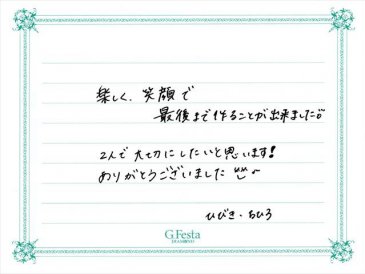 楽しく、笑顔で
最後まで作ることが出来ました。
2人で大切にしたいと思います!
ありがとうございました
ひびき・ちひろ
G.Festa
DIAMOND